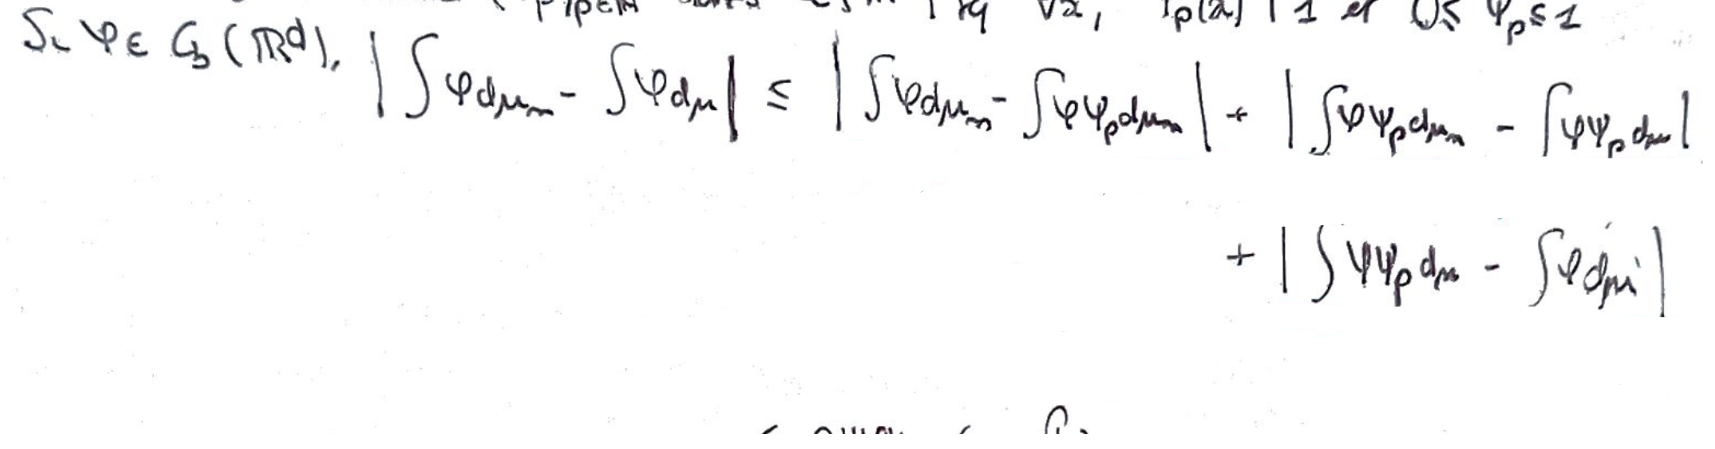 ∀x, ψ_p(x) ↑ 1 et 0 ≤ ψ_p ≤ 1
Si φ ∈ C_b(ℝ^d), |∫φdμ_n - ∫φdμ| ≤ |∫φdμ_n - ∫φψ_p dμ_n| + |∫φψ_p dμ_n - ∫φψ_p dμ|
+ |∫φψ_p dμ - ∫φdμ|